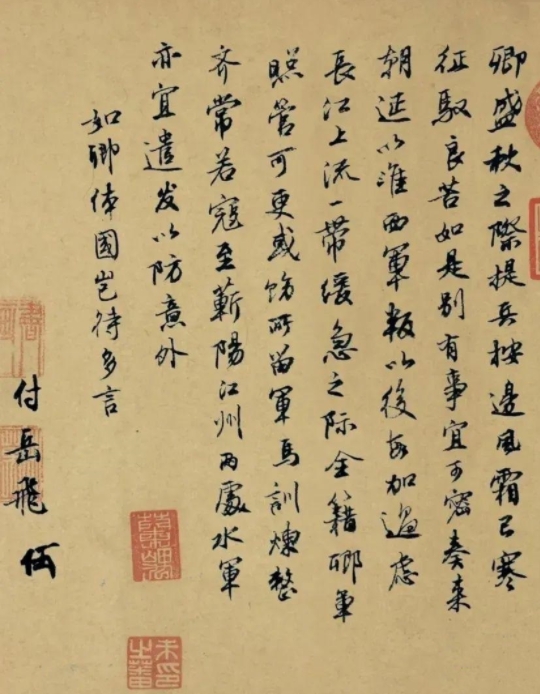 卿盛秋之際提兵按邊風霜已寒
征馭良苦如是別有事宜可密奏來
朝廷以淮西軍叛以後每加過慮
長江上流一帶緩急之際全藉卿軍
照管可更戒飭所留軍馬訓煉整
齊常若寇至蘄陽江州兩處水軍
亦宜遣發以防意外
如卿体國豈待多言
付岳飛